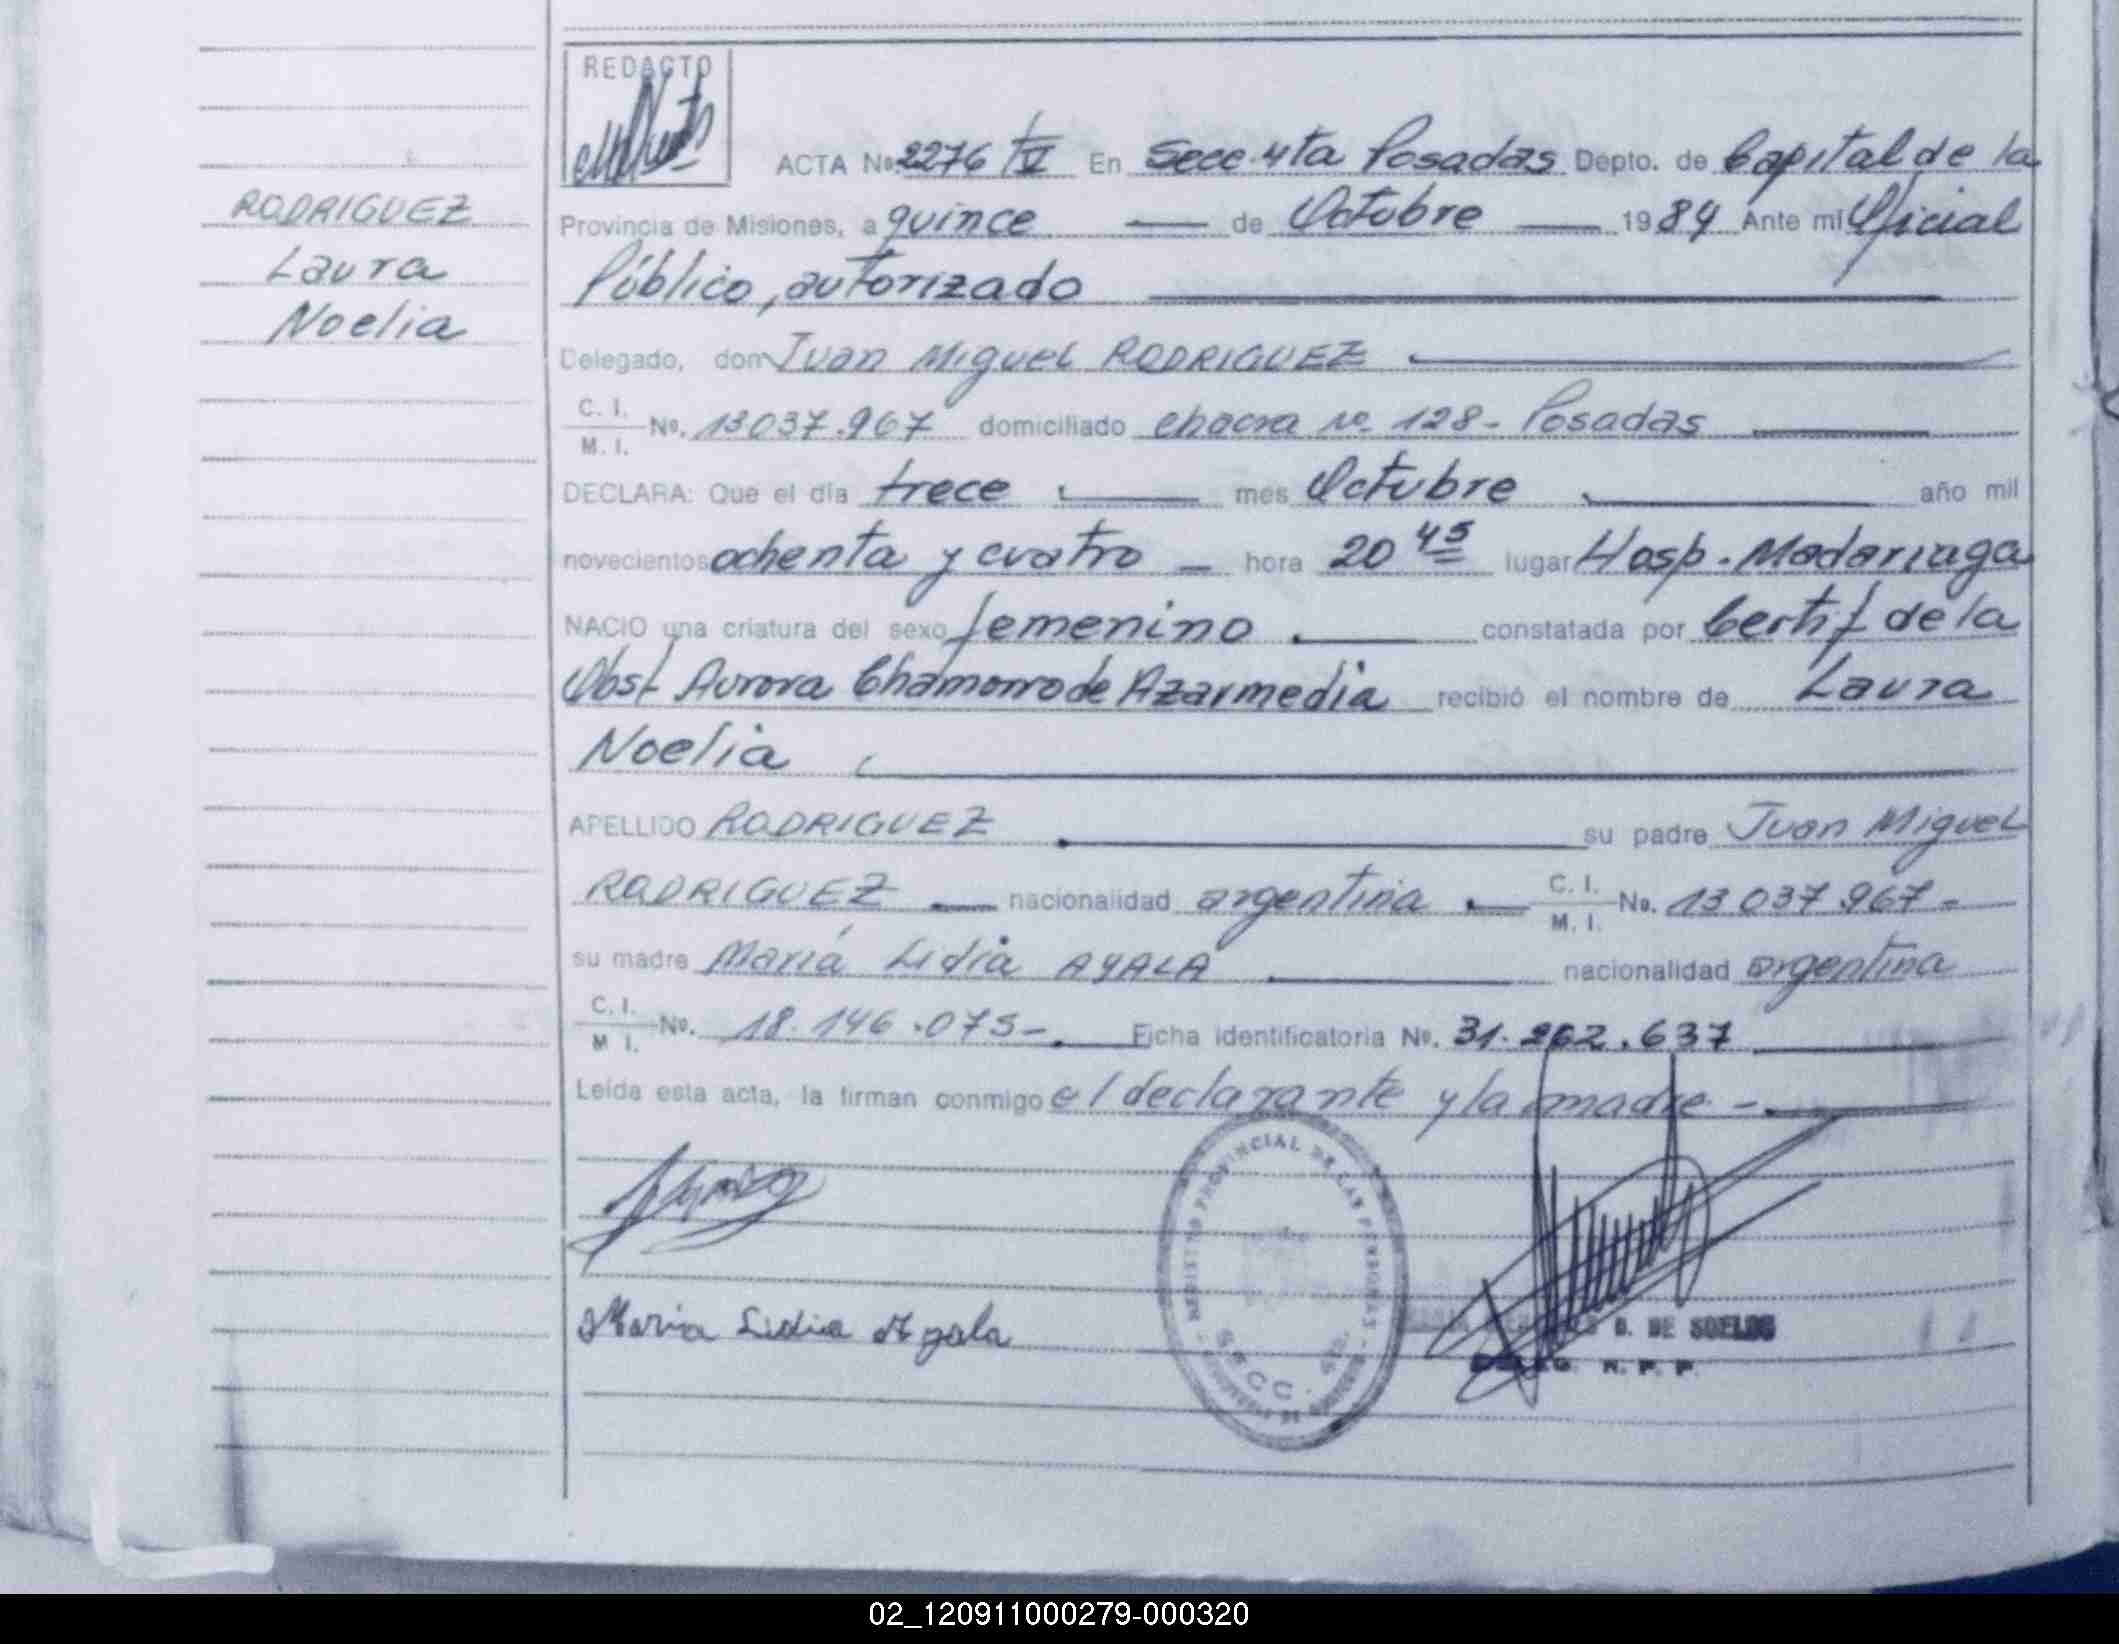 REDACTO
ACTA Nº 2276 T IV En Secc. 4ta Posadas Depto. de Capital de la
Provincia de Misiones, a quince de Octubre 1984 Ante mí Oficial
Público, autorizado
RODRIGUEZ
Laura
Noelia
Delegado, don Juan Miguel RODRIGUEZ
C. I.
M. I. Nº. 13037.967 domiciliado chacra Nº 128 - Posadas
DECLARA: Que el día trece mes Octubre año mil
novecientos ochenta y cuatro - hora 20 45 lugar Hosp. Madariaga
NACIO una criatura del sexo femenino constatada por Certif de la
Obst Aurora Chamorro de Azarmedia recibió el nombre de Laura
Noelia
APELLIDO RODRIGUEZ su padre Juan Miguel
RODRIGUEZ nacionalidad argentina C. I.
M. I. Nº. 13 037 967 -
su madre María Lidia AYALA nacionalidad argentina
C. I.
M I. Nº. 18.146.075 - Ficha identificatoria Nº. 31.262.637
Leída esta acta, la firman conmigo el declarante y la madre -
REGISTRO PROVINCIAL DE LAS PERSONAS
SECC. 4ta.
Maria Lidia Ayala
G. DE SOELOS
DELEG. R. P. P.
02_120911000279-000320